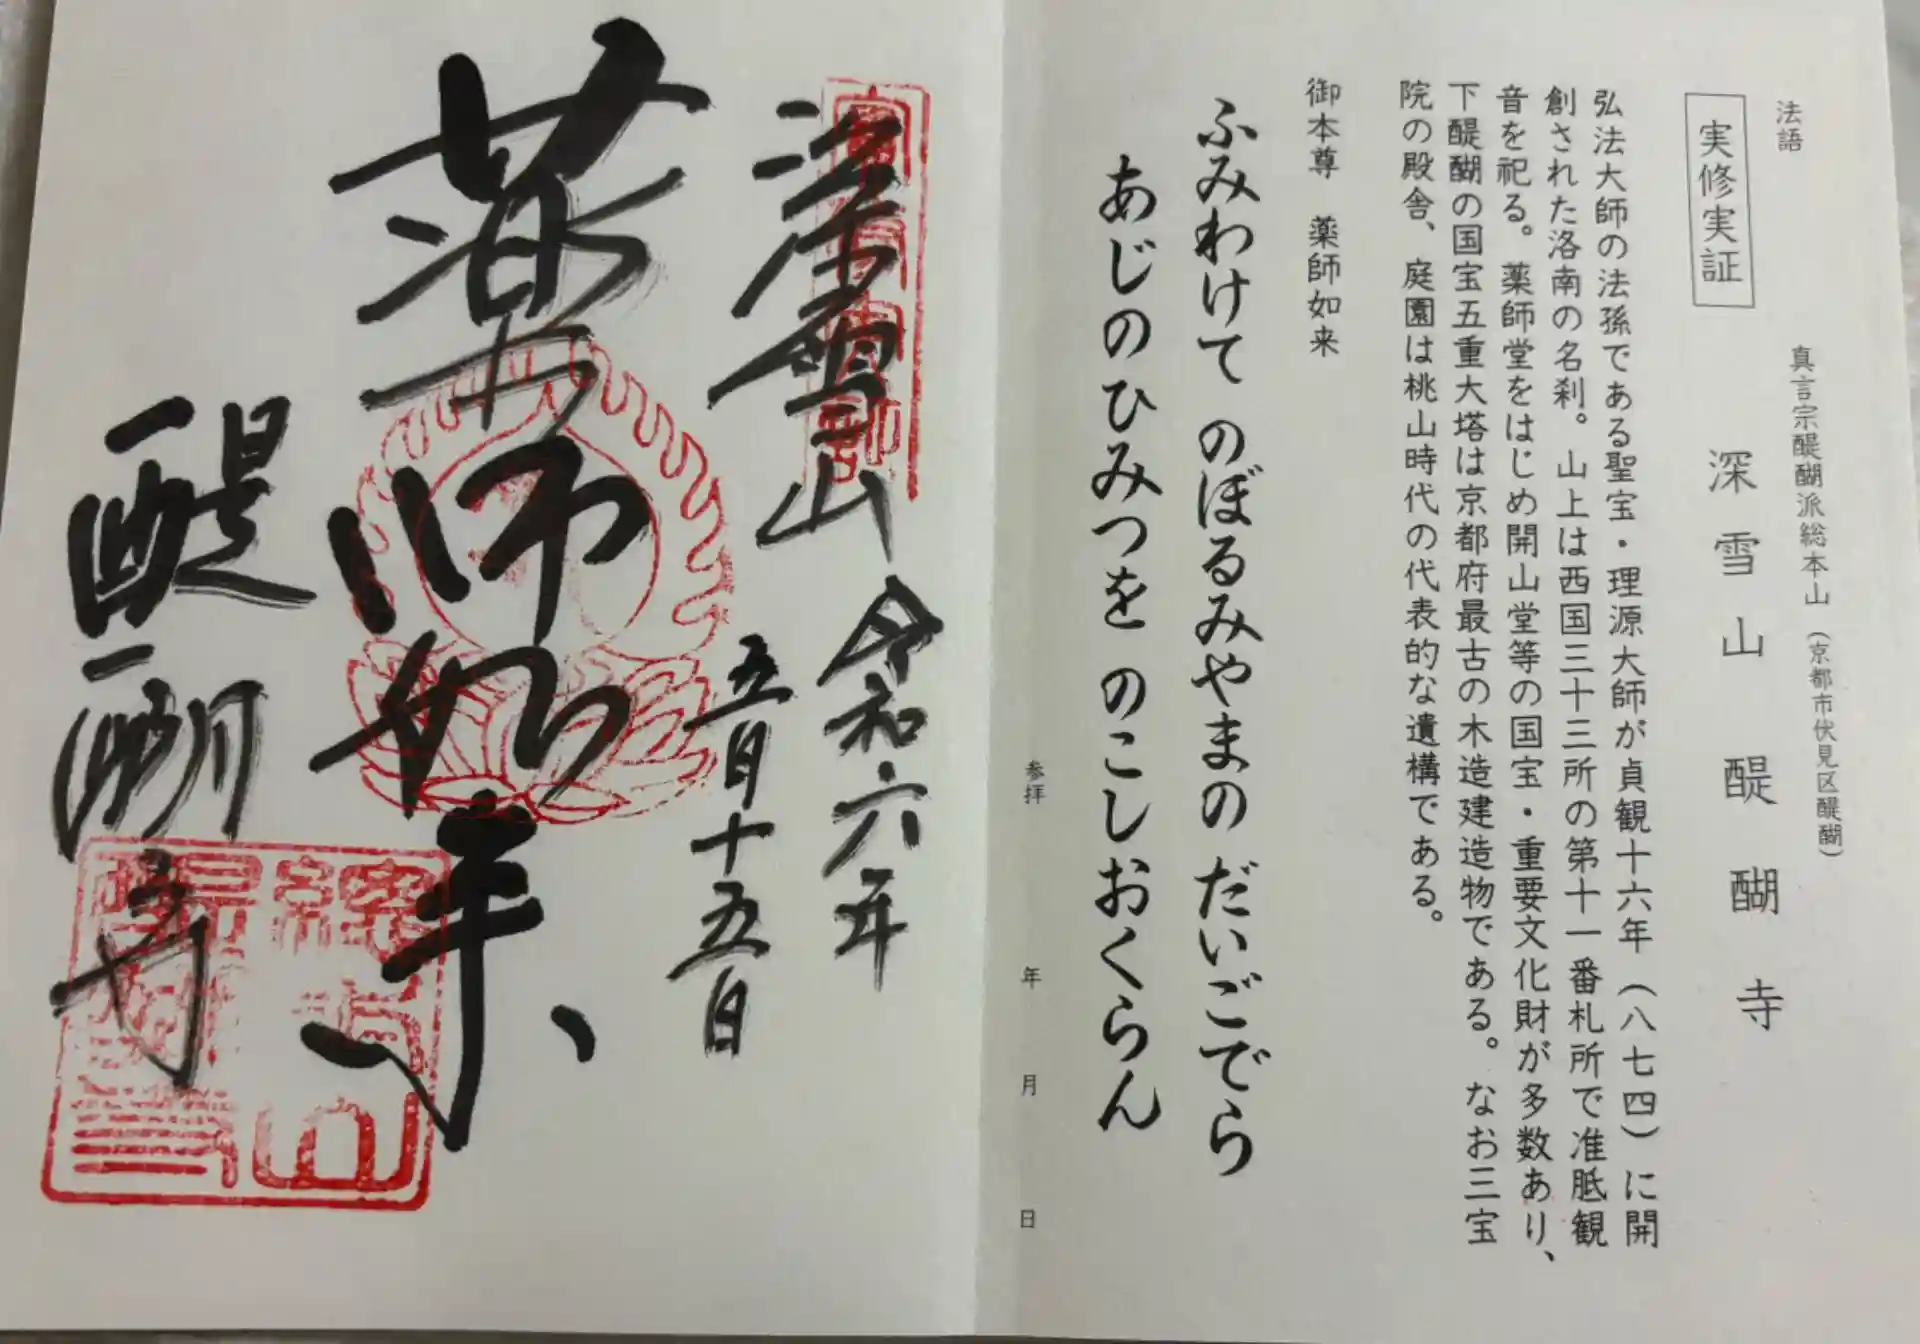 法語
真言宗醍醐派総本山（京都市伏見区醍醐）
実修実証
深雪山 醍醐寺
弘法大師の法孫である聖宝・理源大師が貞観十六年（八七四）に開
創された洛南の名刹。山上は西国三十三所の第十一番札所で准胝観
音を祀る。薬師堂をはじめ開山堂等の国宝・重要文化財が多数あり、
下醍醐の国宝五重大塔は京都府最古の木造建造物である。なお三宝
院の殿舎、庭園は桃山時代の代表的な遺構である。
御本尊 薬師如来
ふみわけて のぼるみやまの だいごでら
あじのひみつを のこしおくらん
参拝 年 月 日
深雪山
令和六年
五月十五日
薬師如来
醍醐寺